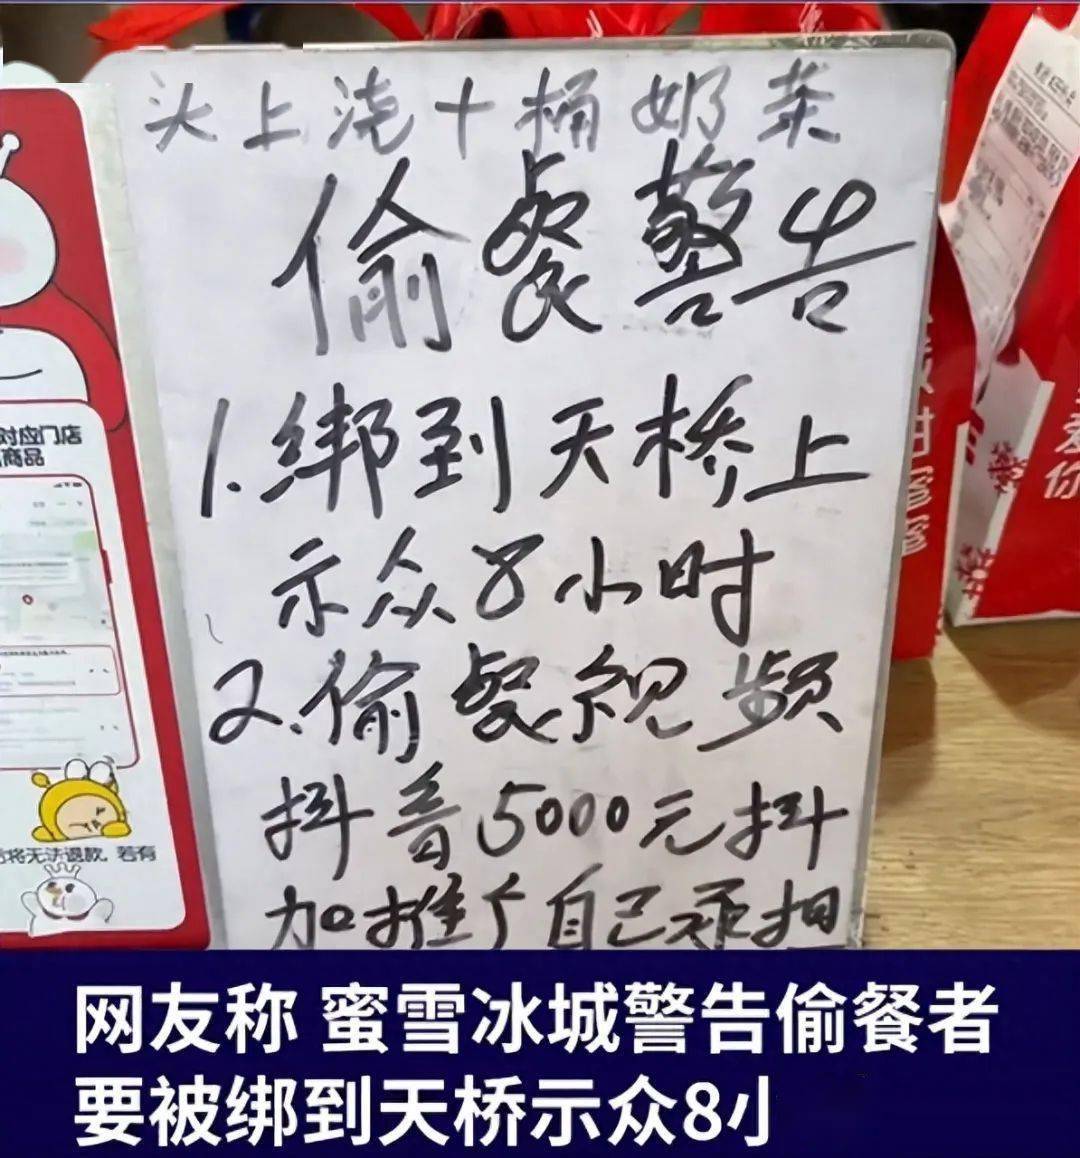 头上浇十桶奶茶
偷餐警告
1.绑到天桥上
示众8小时
2.偷餐视频
抖音5000元抖
加推广自己承担
对应门店
商品
将无法退款,若有
甜蜜蜜
爱
你
网友称 蜜雪冰城警告偷餐者
要被绑到天桥示众8小